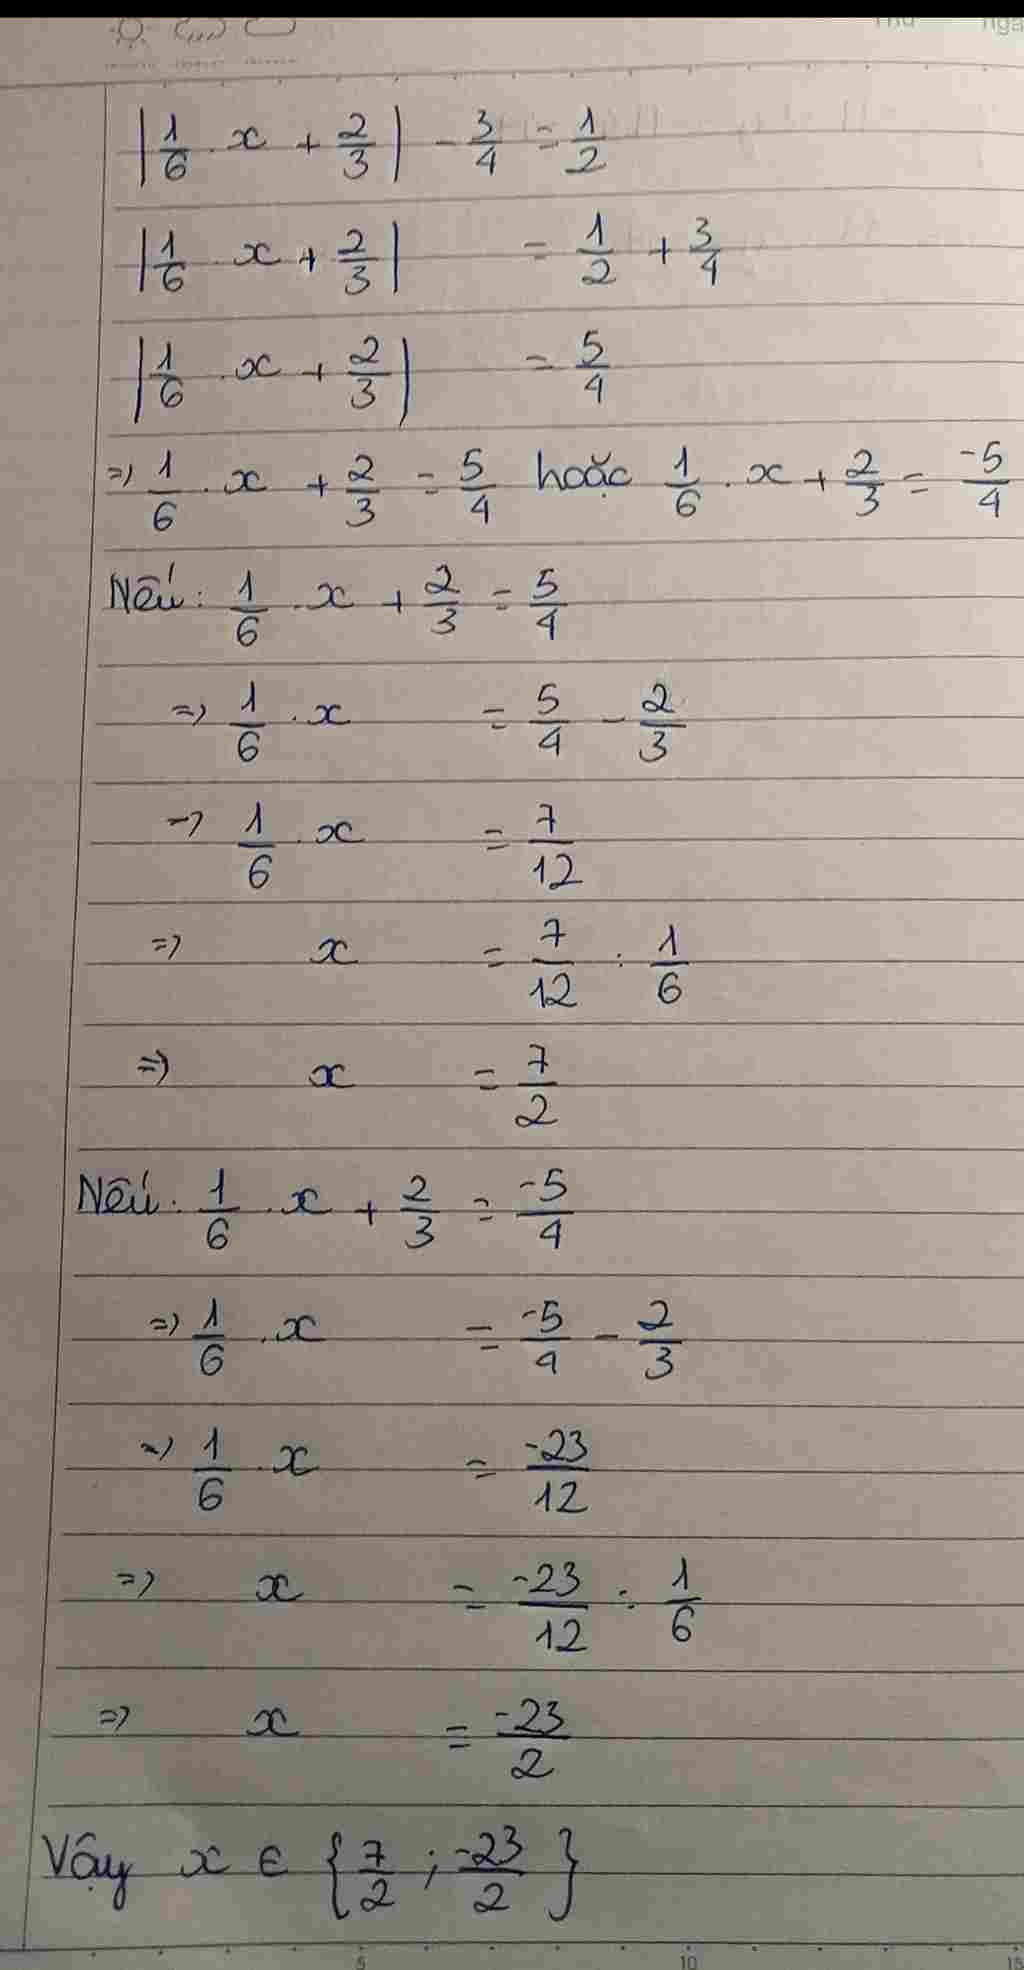 Thứ
|1/6 . x + 2/3| - 3/4 = 1/2
|1/6 . x + 2/3| = 1/2 + 3/4
|1/6 . x + 2/3| = 5/4
=> 1/6 . x + 2/3 = 5/4 hoặc 1/6 . x + 2/3 = -5/4
Nếu: 1/6 . x + 2/3 = 5/4
=> 1/6 . x = 5/4 - 2/3
=> 1/6 . x = 7/12
=> x = 7/12 : 1/6
=> x = 7/2
Nếu: 1/6 . x + 2/3 = -5/4
=> 1/6 . x = -5/4 - 2/3
=> 1/6 . x = -23/12
=> x = -23/12 : 1/6
=> x = -23/2
Vậy x ∈ {7/2 ; -23/2}
5 10 15